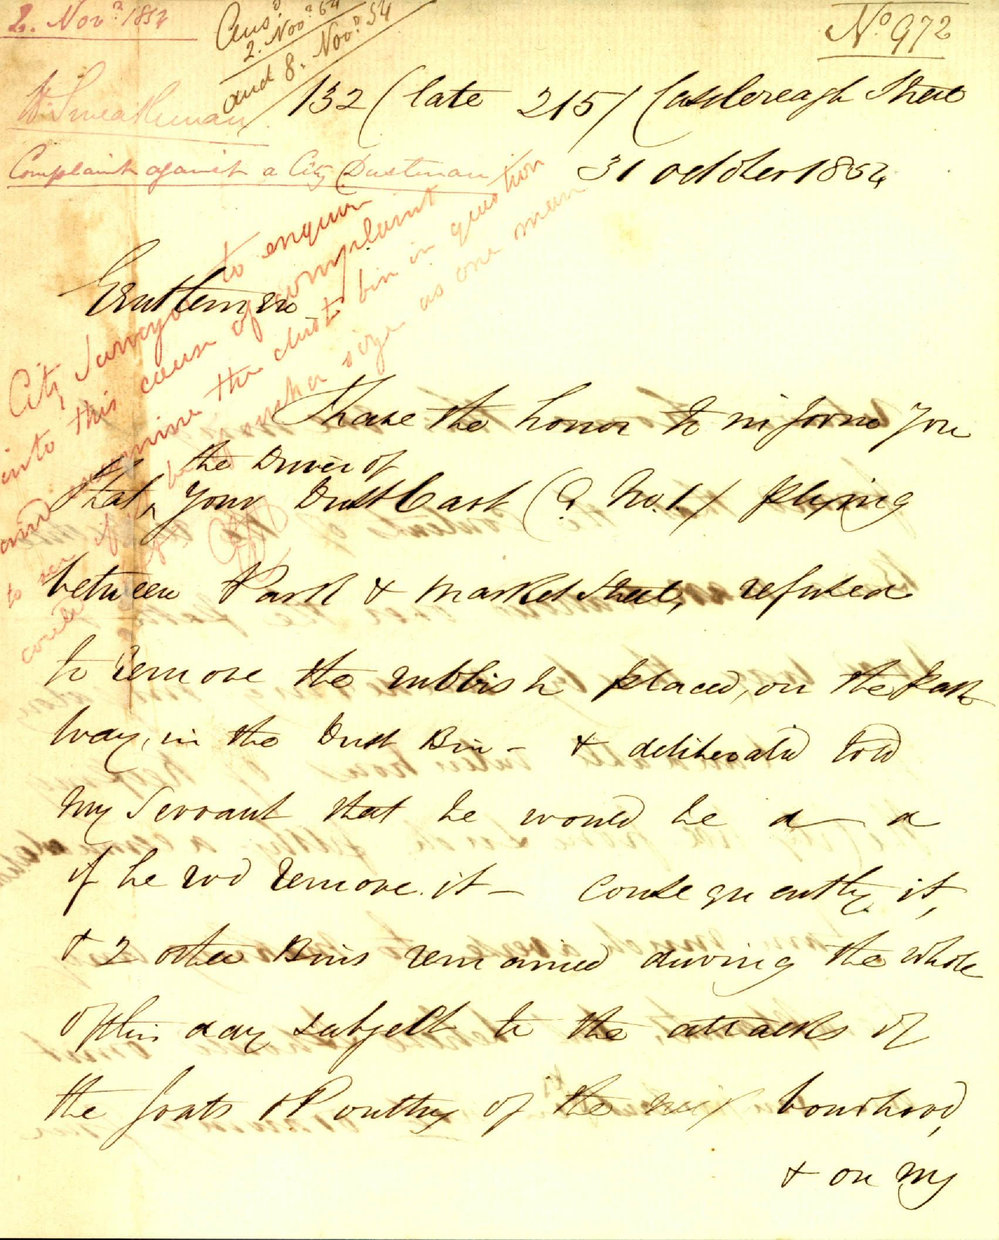 2. Nov.r 1854
Ans.d
2. Nov.r 54
and 8. Nov.r 54
No. 972
W Smeathman
Complaint against a City Dustman
132 (late 215) Castlereagh Street
31 October 1854
Gentlemen
City Surveyor to enquire
into this cause of complaint
and examine the dust bin in question
to see if of such a size as one man
could
I have the honor to inform you
that the Driver of your Dust Cart (C No. 1) plying
between Park & Market Street, refused
to remove the rubbish placed, on the path
way, in the Dust Bin – & deliberately told
my Servant that he would be d— d
if he wd remove it – Consequently it,
& 2 other Bins remained during the whole
of this day subject to the attacks of
the Goats & Poultry of the neighbourhood,
& on my